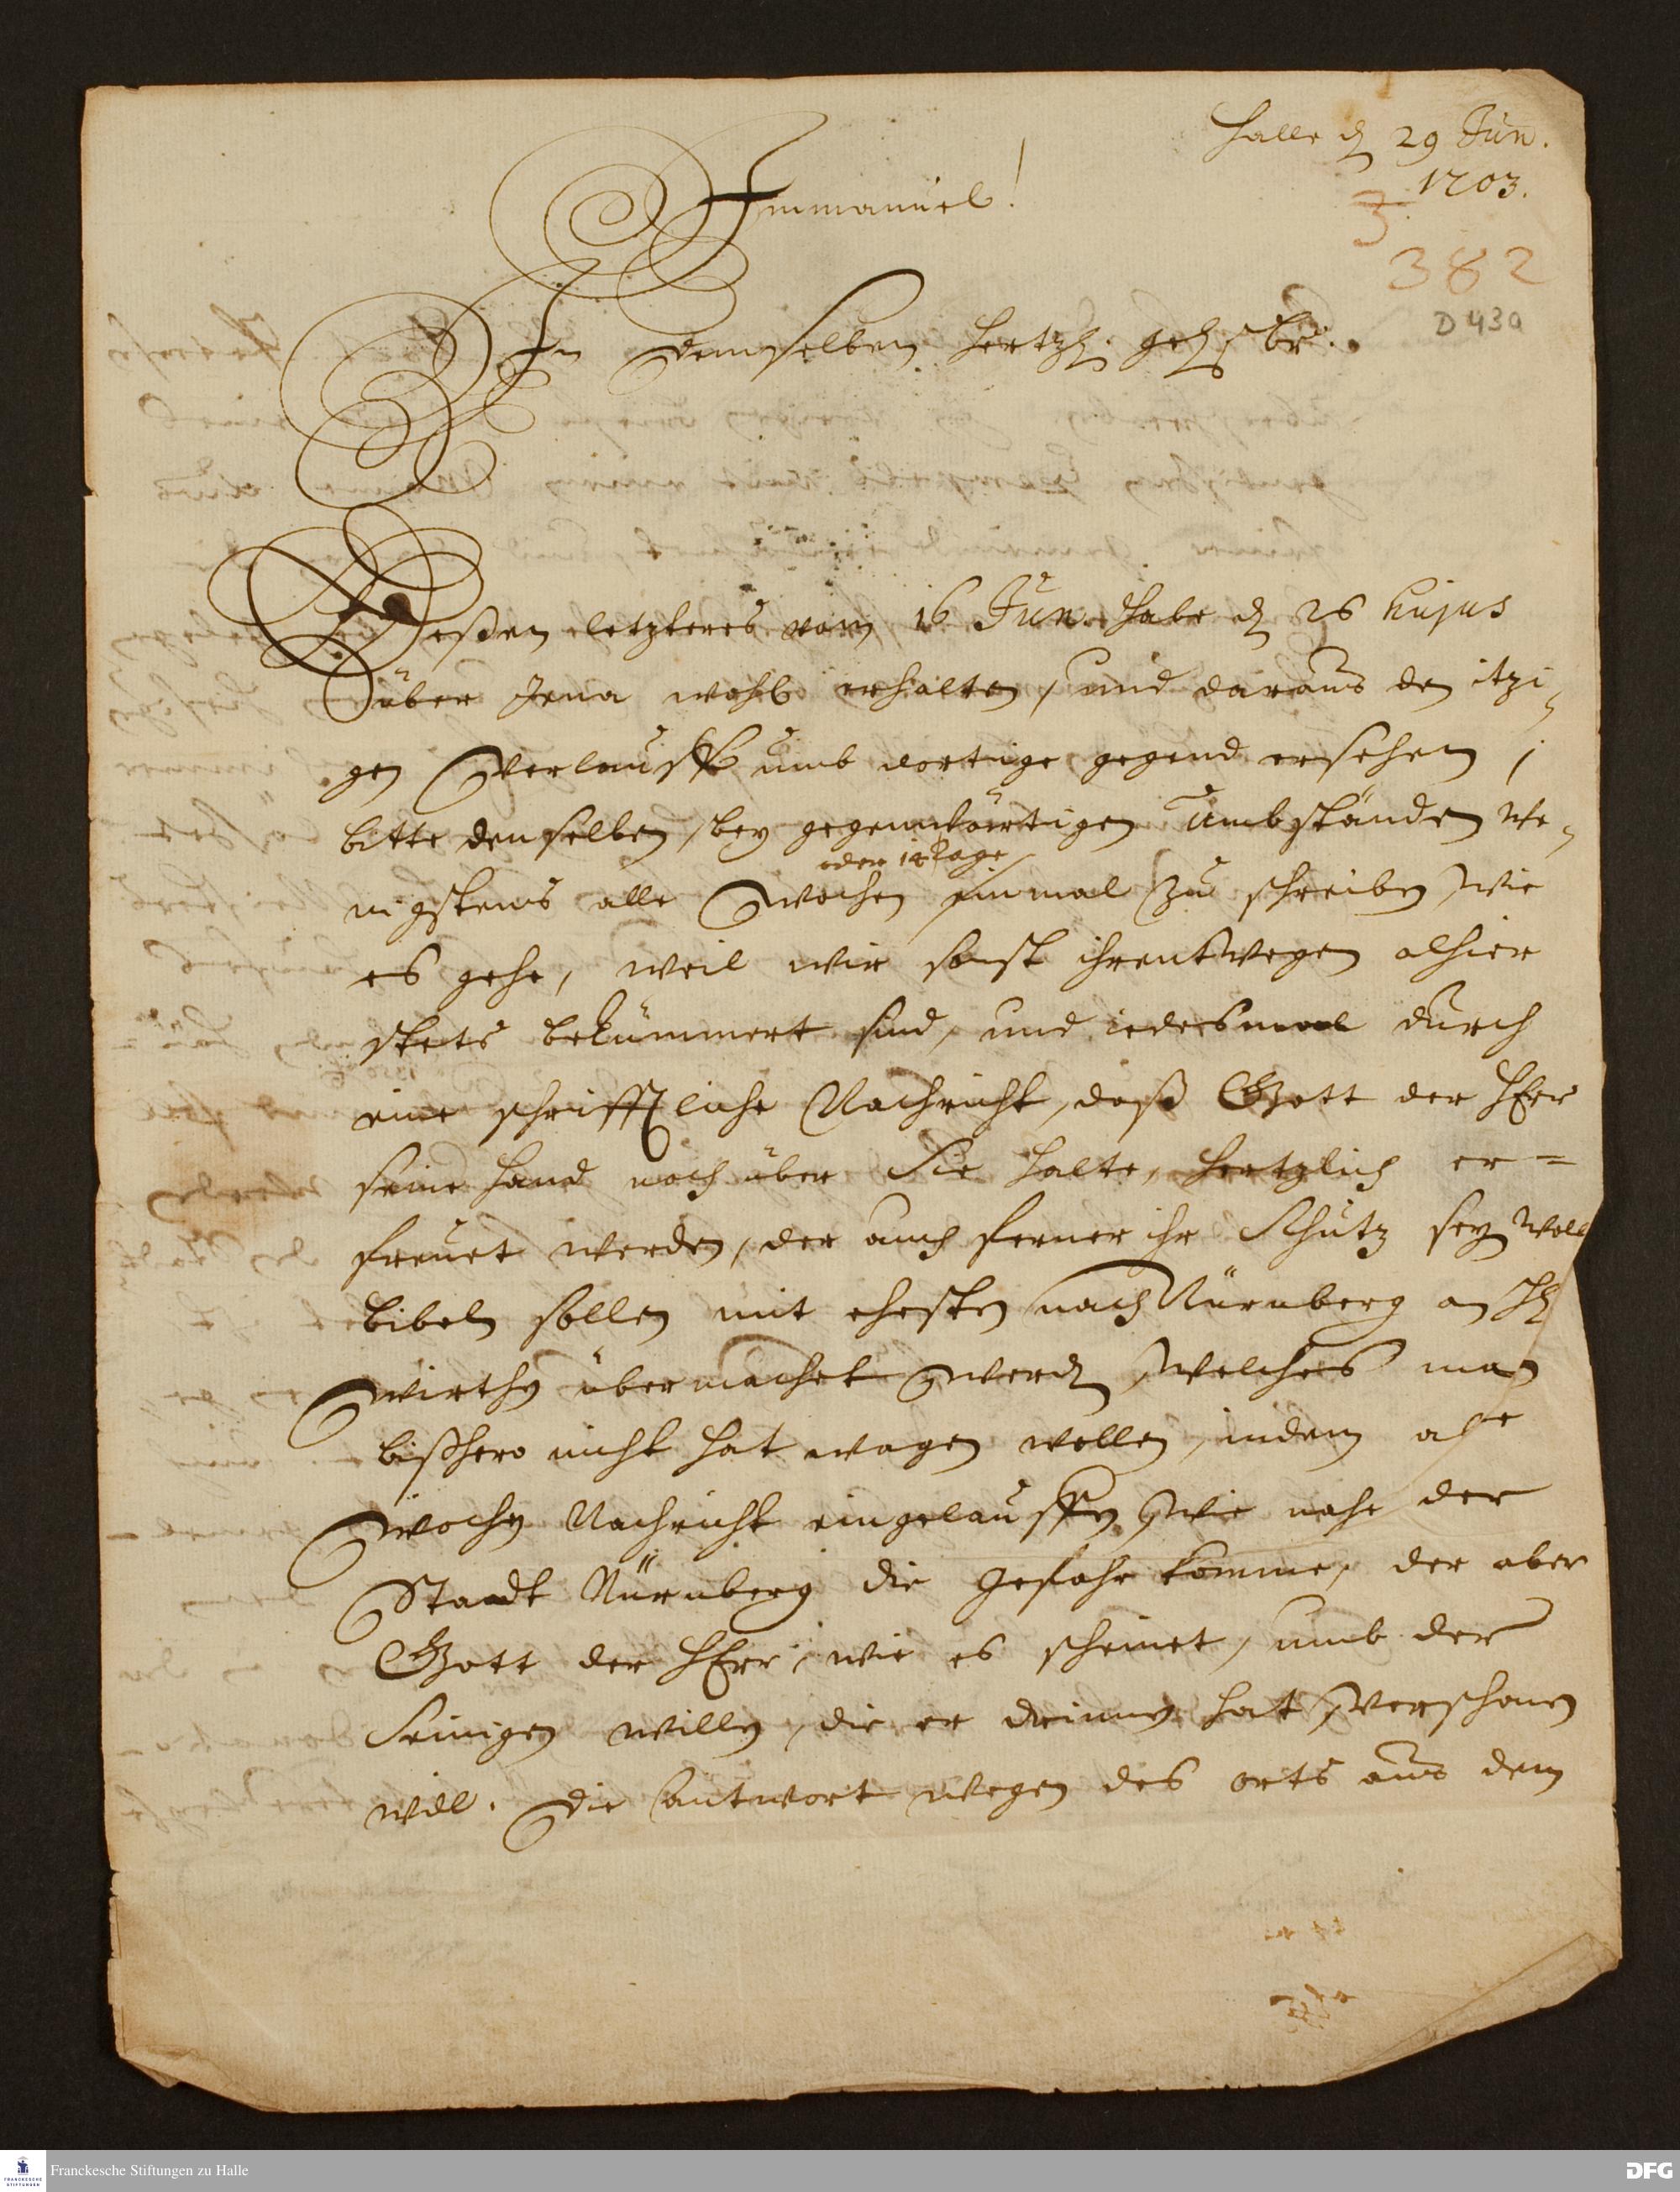 Halle d 29 Jun.
1703.
Immanuel!
3
382
D 43a
In demselben Hertzl. gel. Br.
Deßen letzteres vom 16 Jun. habe d 26 hujus
über Jena wohl erhalten, und daraus den itzi-
gen Verlauff umb dortige gegend ersehen,
bitte denselben, bey gegenwärtigen Umbständen we-
oder 14 Tage
nigstens alle Wochen einmal zu schreiben, wie
es gehe, weil wir sonst ihrentwegen alhier
stets bekümmert sind, und iedesmal durch
eine schrifftliche Nachricht, daß Gott der HErr
seine Hand noch über Sie halte, hertzlich er=
freuet werden, der auch ferner ihr Schutz sey woll
Bibeln sollen mit ehesten nach Nürnberg an H
Wirthen übermachet werden, welches man
bißhero nicht hat wagen wollen, indem alle
Wochen Nachricht eingelauffen, wie nahe der
Stadt Nürnberg die Gefahr komme, der aber
Gott der HErr, wie es scheinet, umb der
Seinigen willen, die er drinnen hat, verschonen
will. Die Antwort wegen des orts aus dem
Franckesche Stiftungen zu Halle
FRANCKESCHE
STIFTUNGEN
DFG